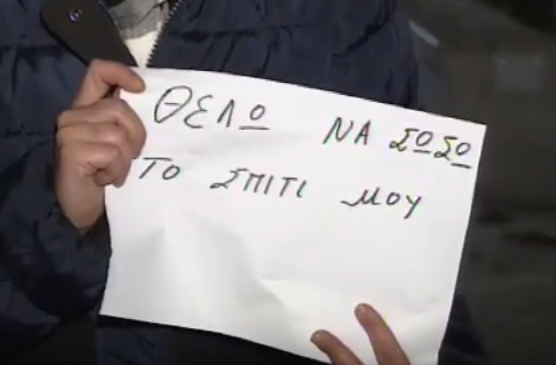 ΘΕΛΩ ΝΑ ΣΩΣΩ
ΤΟ ΣΠΙΤΙ ΜΟΥ